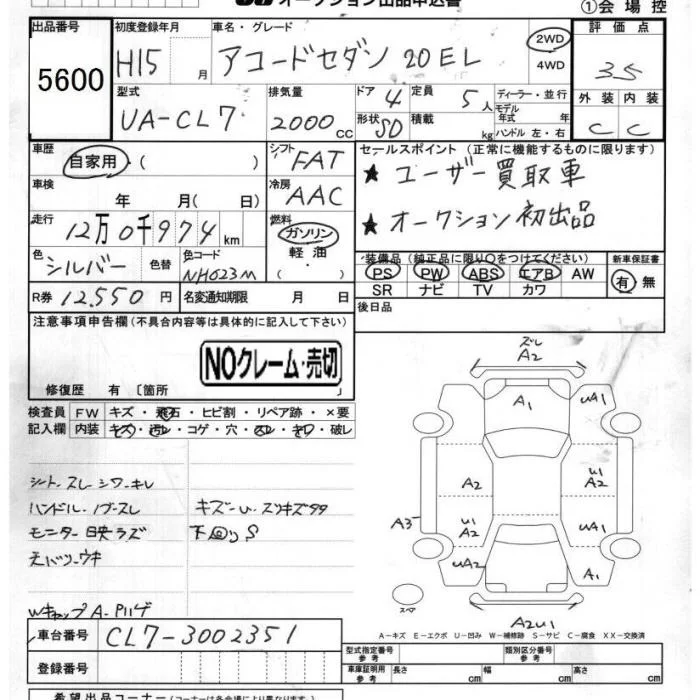 オークション出品申込書
①会場控
出品番号
5600
初度登録年月
H15 月
車名・グレード
アコードセダン 20EL
2WD
4WD
評価点
3.5
型式
UA-CL7
排気量
2000 cc
ドア 4
形状 SD
定員 5 人
積載 kg
ディーラー・並行
モデル年式 年
ハンドル 左・右
外装 内装
C C
車歴
自家用・( )
シフト FAT
車検
年 月( 日)
冷房 AAC
走行
12万0千974 km
燃料
ガソリン
軽油
・( )
色
シルバー
色替
色コード
NH623M
R券 12,550 円
名変通知期限 月 日
セールスポイント (正常に機能するものに限ります)
★ ユーザー買取車
★ オークション初出品
装備品 (純正品に限り○をつけてください)
PS PW ABS エアB AW
SR ナビ TV カワ
新車保証書
有・無
後日品
注意事項申告欄(不具合内容等は具体的に記入して下さい)
NOクレーム・売切
修復歴 有 〔箇所 〕
検査員記入欄
FW キズ・飛石・ヒビ割・リペア跡・×要
内装 キズ・汚レ・コゲ・穴・スレ・キワ・破レ
シート スレ シワ・キレ
ハンドル・ノブ・スレ
モニター 映ラズ
キズ・U・スリキズタタ
下回りS
Wキャップ A・P
ズレ
A2
A1
UA1
A2
U1
A2
A3
U1
A2
UA1
UA2
A1
スペア
A2U1
A-キズ E-エクボ U-凹み W-補修跡 S-サビ C-腐食 XX-交換済
車台番号 CL7-3002351
登録番号
型式指定番号 参考
類別区分番号 参考
車庫証明用 参考 長さ cm 幅 cm 高さ cm
希望出品コーナー (コーナーは各会場により異なります)